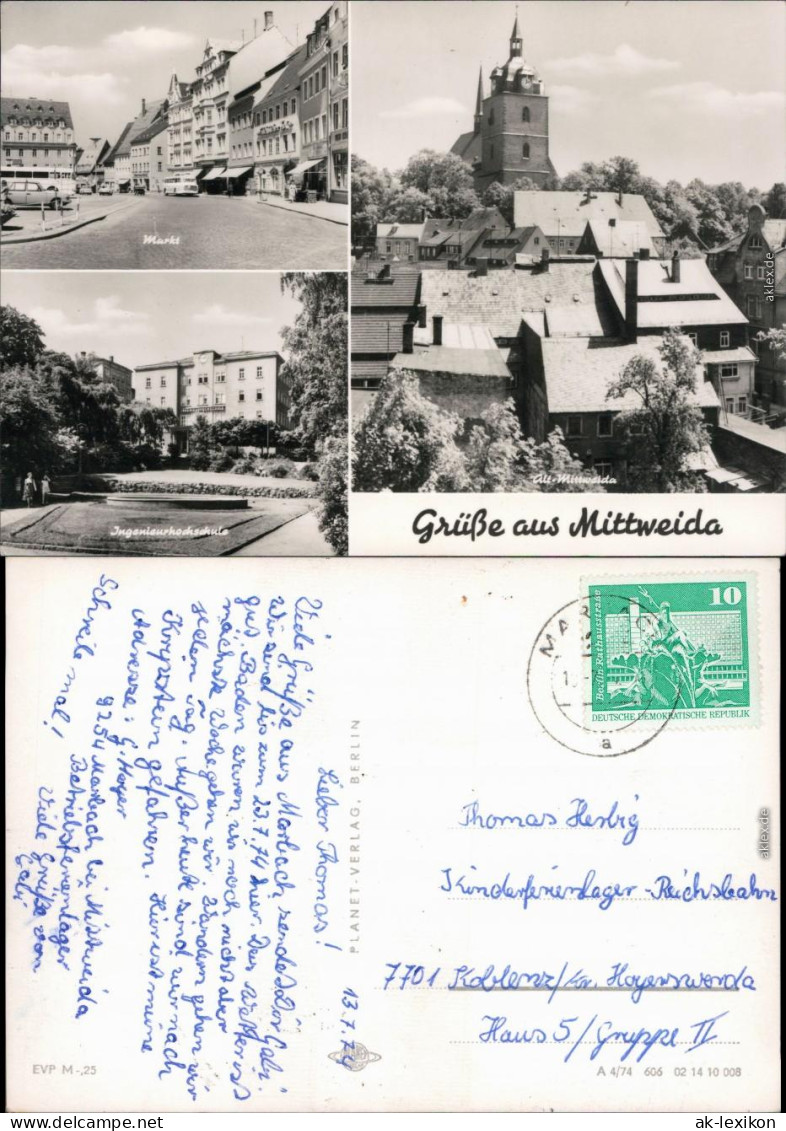 Markt
Ingenieurhochschule
Alt-Mittweida
Grüße aus Mittweida
aklex.de
13.7.74
Lieber Thomas!
Viele Grüße aus Marbach sendet Dir Gabi.
Wir sind bis zum 23.7.74 hier. Das Wetter ist
gut. Baden waren wir noch nicht aber
nächste Woche gehen wir. Wandern gehen wir
jeden Tag. Außer heute sind wir nach
Kriepstein gefahren. Hier ist meine
Adresse: G. Hoyer
9254 Marbach bei Mittweida
Betriebsferienlager
Schreib mal! Viele Grüße von
Gabi
PLANET-VERLAG, BERLIN
EVP M -,25
MARBACH
a
10
Berlin, Rathausstraße
DEUTSCHE DEMOKRATISCHE REPUBLIK
Thomas Herbig
Kinderferienlager-Reichsbahn
7701 Koblenz/Kr. Hoyerswerda
Haus 5/Gruppe II
A 4/74 606 02 14 10 008
aklex.de
www.ak-lexikon.de
ak-lexikon